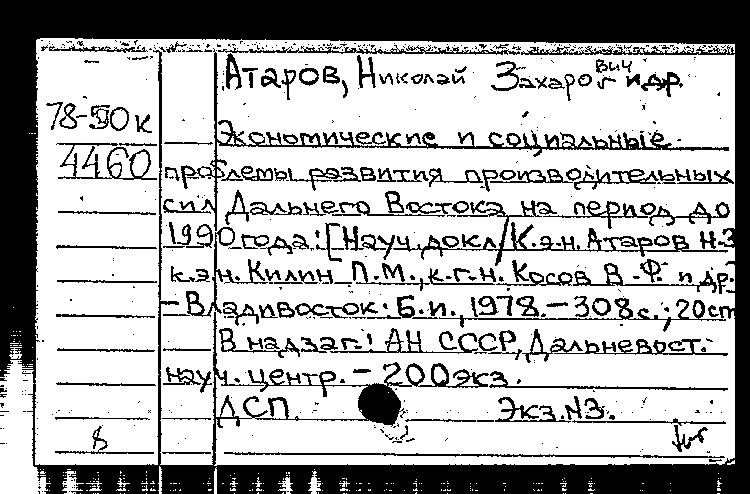 Атаров, Николай Захарович и др.
78-50к
4460
Экономические и социальные
проблемы развития производительных
сил Дальнего Востока на период до
1990 года: [Науч. докл/К.э.н. Атаров Н.З
к.э.н. Килин П.М., к.г.н. Косов В.Ф. и др.
- Владивосток: Б.и., 1978. - 308 с.; 20 cm
В надзаг.: АН СССР, Дальневост.
науч. центр. - 200 экз.
ДСП. Экз. N3.
8